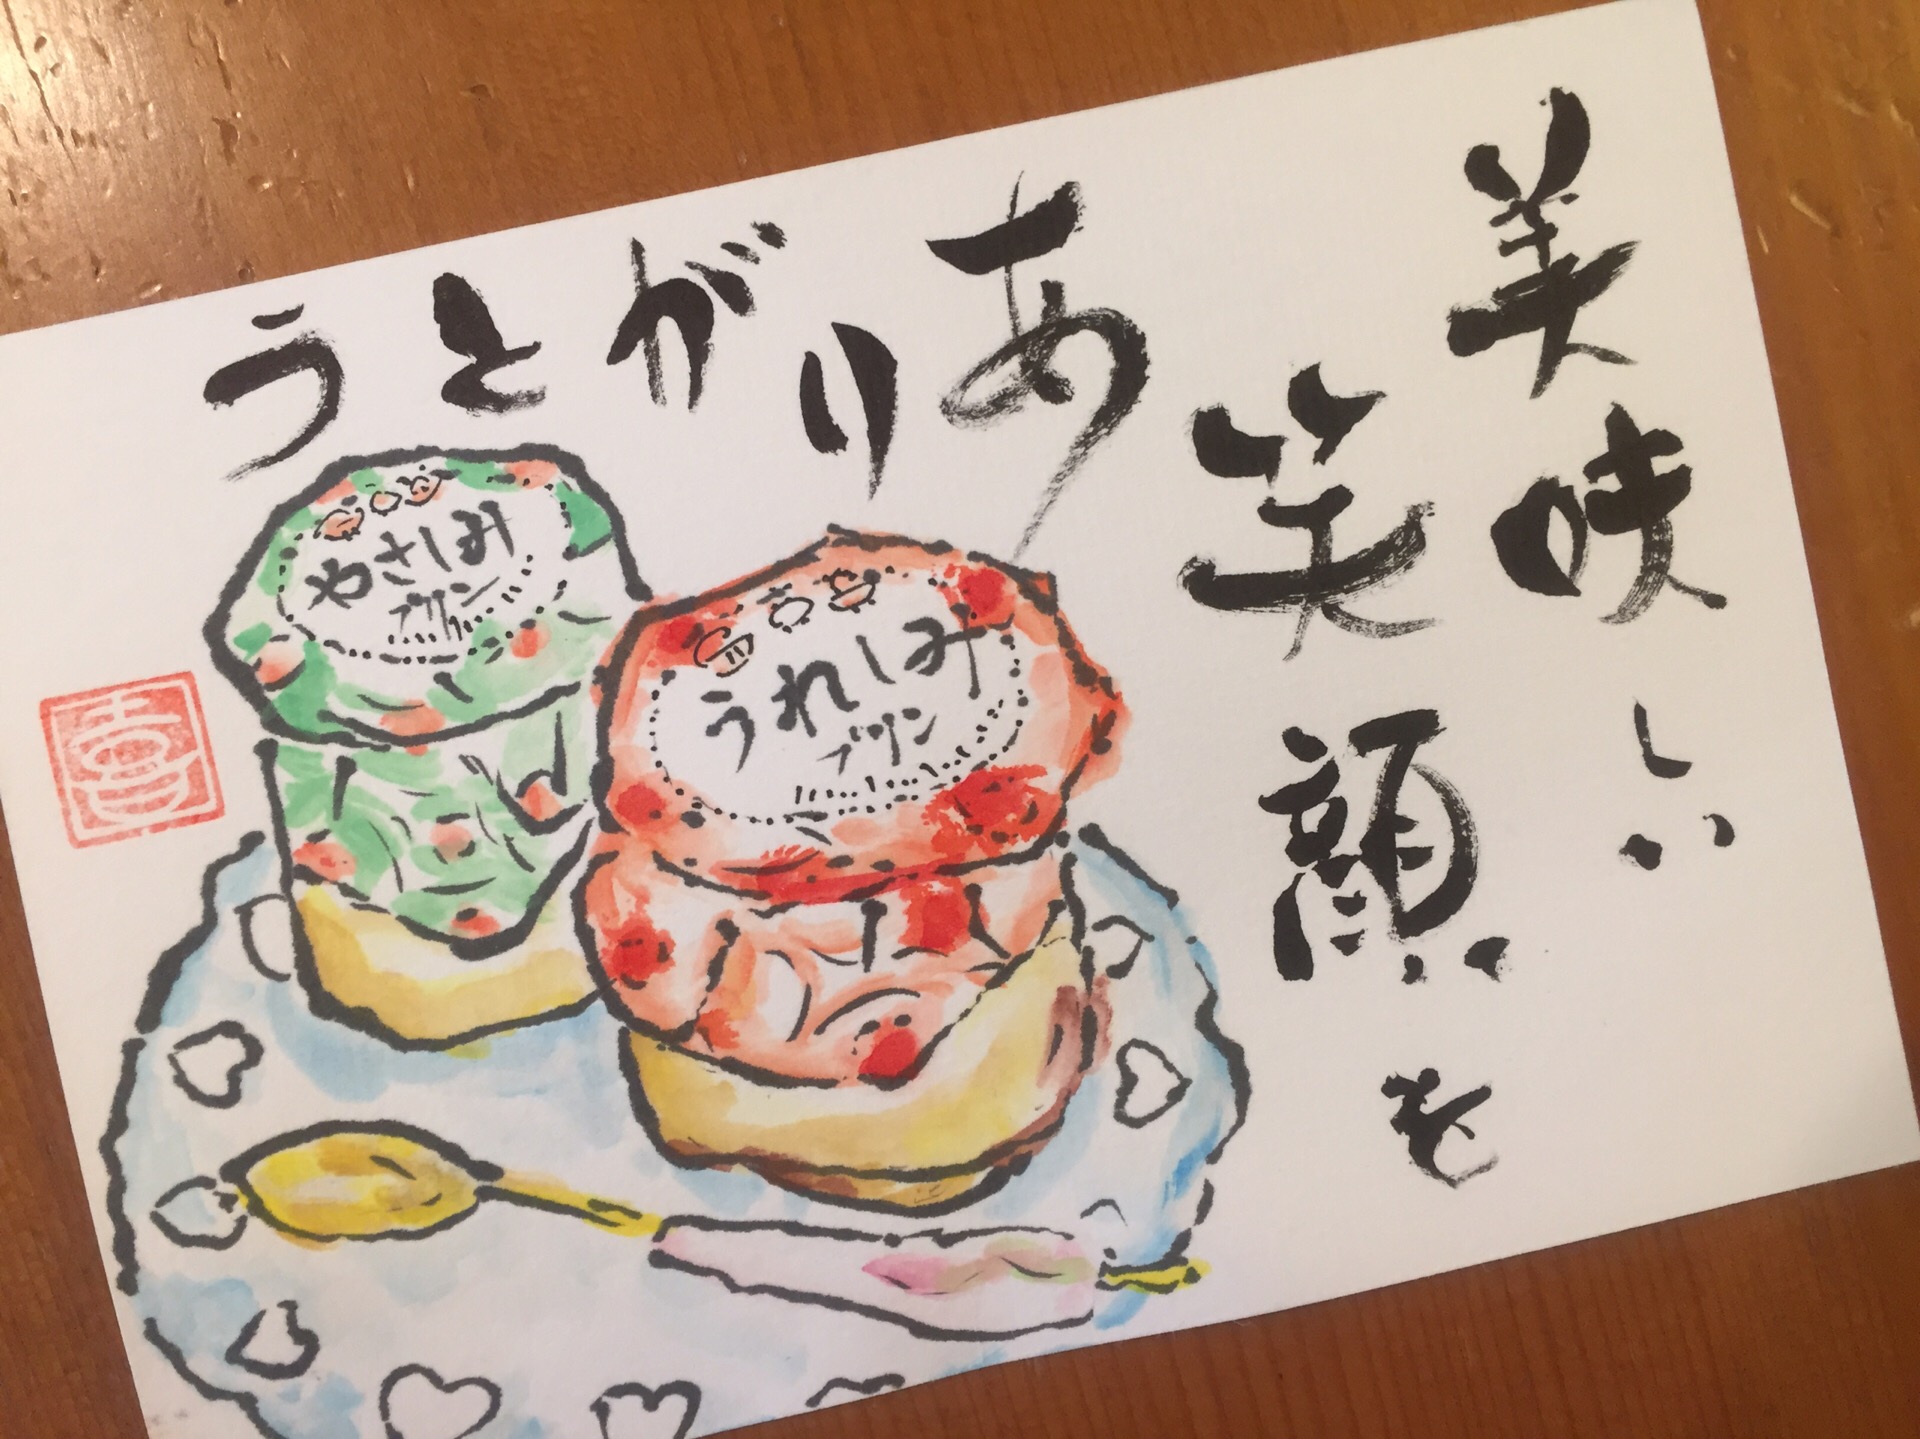 美味しい
笑顔を
ありがとう
やさしみ
プリン
うれしみ
プリン
喜